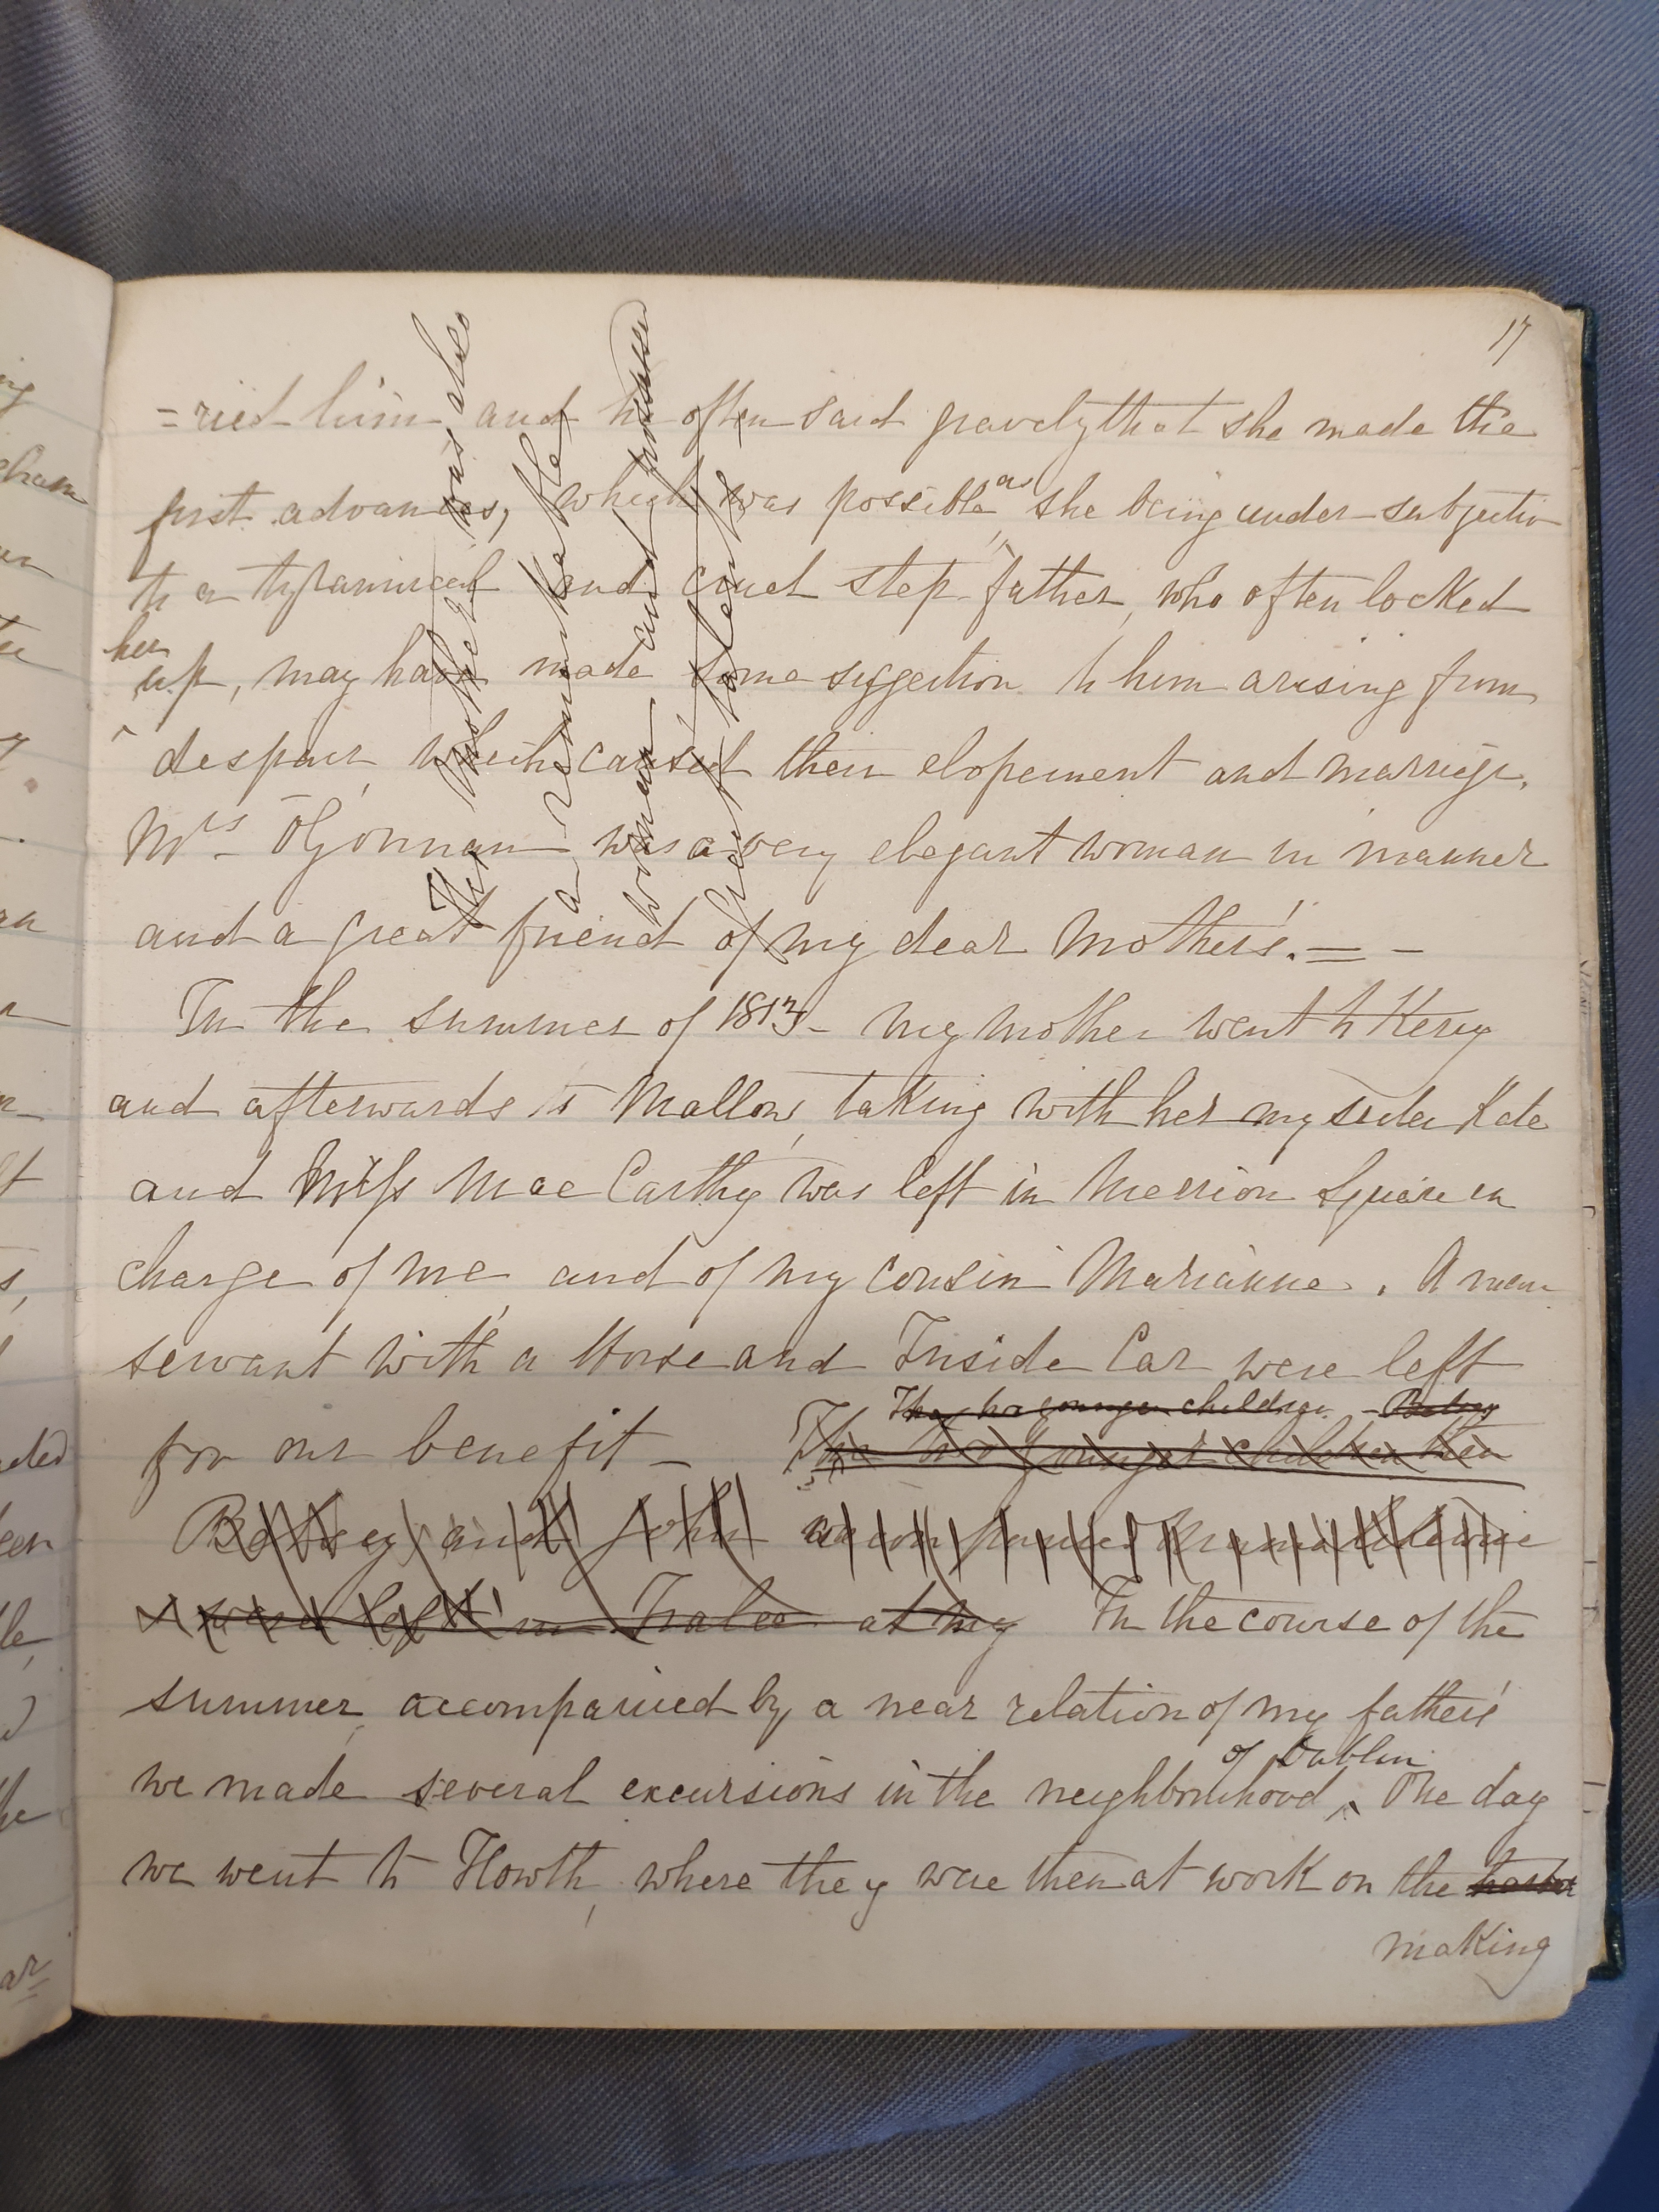 17
=ried him and he often said gravely that she made the
first advances, which was possible as she being under subjection
to a tyrannical and cruel step-father, who often locked
her up, may have made some suggestion to him arising from
despair, which caused their elopement and marriage.
Mrs O'Gorman was a very elegant woman in manner
and a great friend of my dear Mother's. = -
Her Mother was also
a remarkable
woman and possessed
great talent
In the summer of 1813 - my mother went to Kerry
and afterwards to Mallow, taking with her my sister Kate
and Miss Mac Carthy was left in Merrion Square in
charge of me, and of my cousin Marianne. A man
servant with a Horse and Inside Car were left
The two younger children - Betsey
for our benefit - The two younger children then
Betsey and John accompanied
were left in Tralee at my In the course of the
summer, accompanied by a near relation of my father's
we made several excursions in the neighbourhood of Dublin. The day
we went to Howth, where they were then at work on the harbor
making